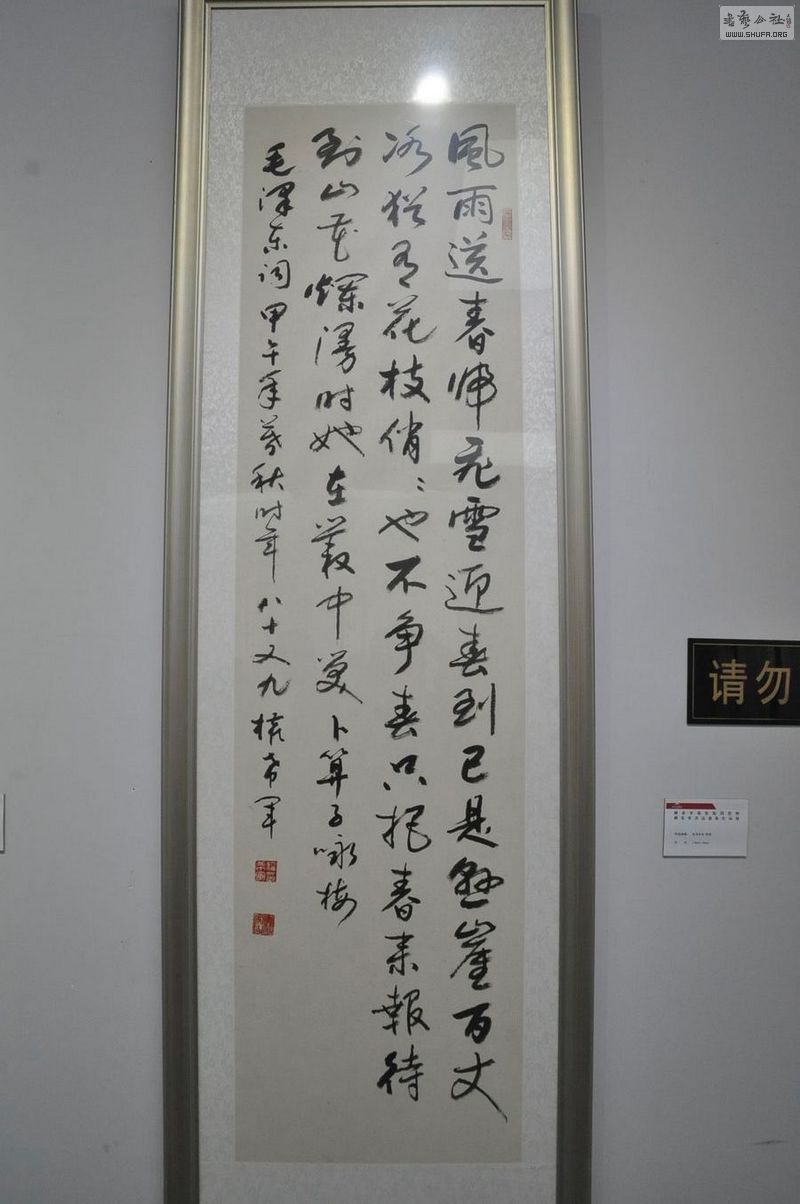 風雨送春歸飛雪迎春到已是懸崖百丈
冰猶有花枝俏〻也不争春只把春来報待
到山花爛漫時她在叢中笑卜算子咏梅
毛澤东詞甲午年暮秋时年八十又九
请勿
WWW.SHUFA.ORG